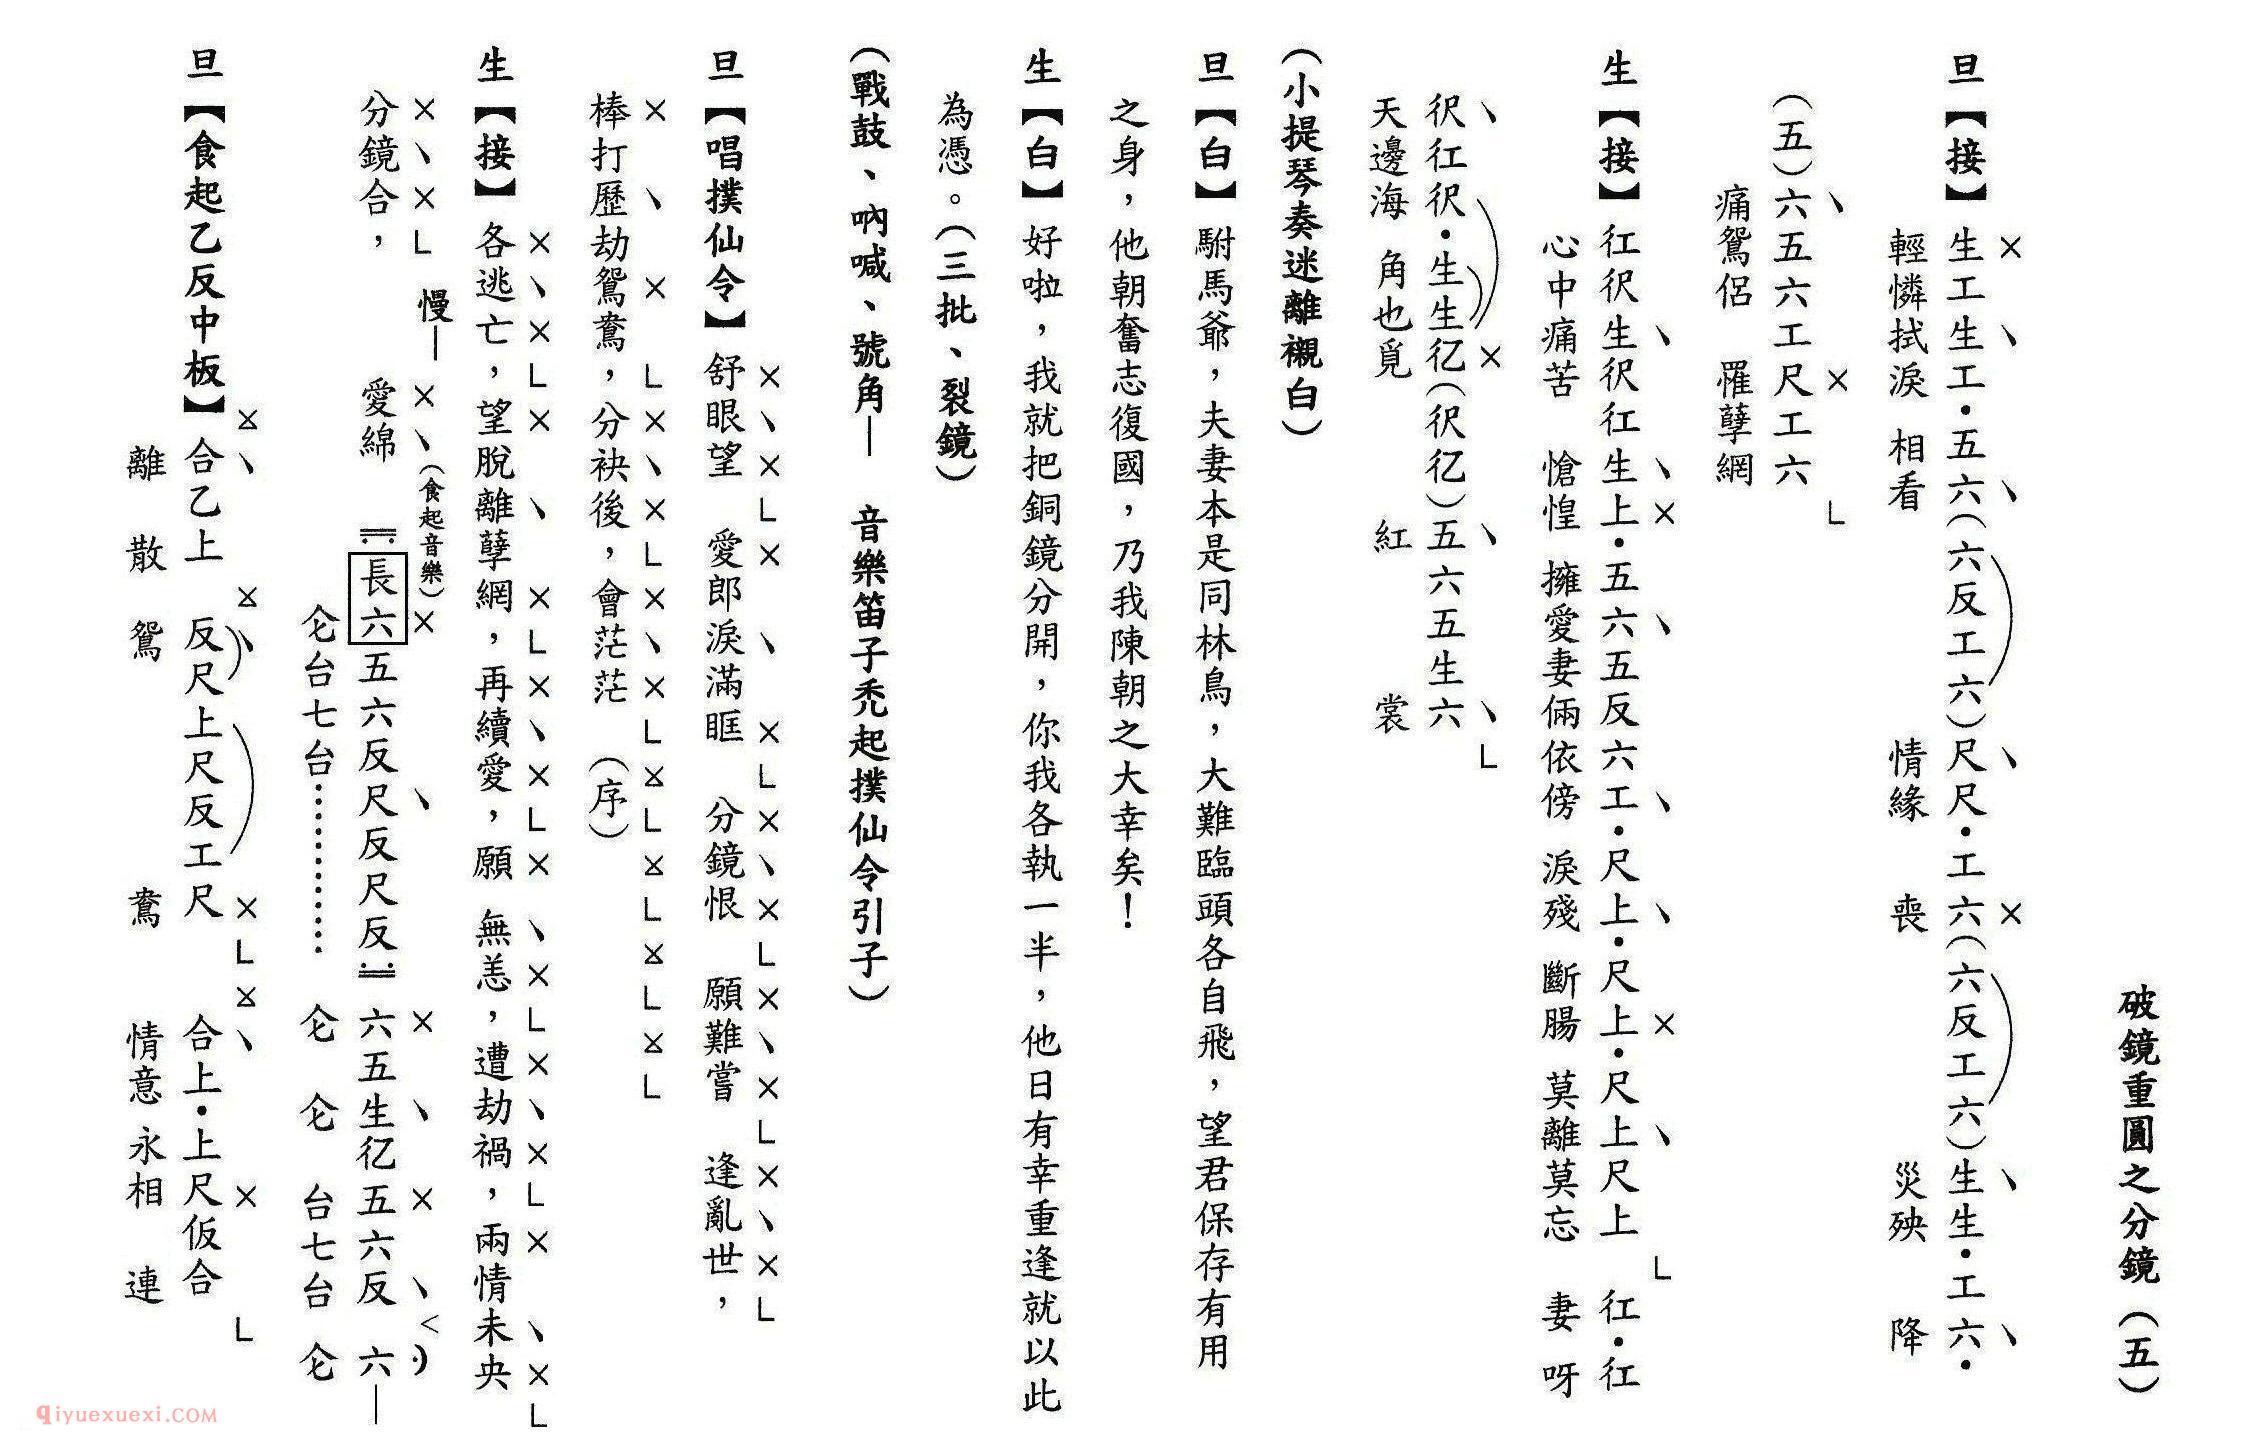 破鏡重圓之分鏡（五）
旦【接】生工生工・五六（六反工六）尺尺・工六（六反工六）生生・工六・
輕憐拭淚 相看 情緣 喪 災殃 降
（五）六五六工尺工六
痛鴛侶 罹孽網
生【接】仜伬生伬仜生上・五六五反六工・尺上・尺上・尺上尺上 仜・仜
心中痛苦 愴惶 擁愛妻倆依傍 淚殘 斷腸 莫離莫忘 妻呀
伬仜伬・生生亿（伬亿）五六五生六
天邊海 角也覓 紅 裳
（小提琴奏迷離襯白）
旦【白】駙馬爺，夫妻本是同林鳥，大難臨頭各自飛，望君保存有用
之身，他朝奮志復國，乃我陳朝之大幸矣！
生【白】好啦，我就把銅鏡分開，你我各執一半，他日有幸重逢就以此
為憑。（三批、裂鏡）
（戰鼓、吶喊、號角— 音樂笛子禿起撲仙令引子）
旦【唱撲仙令】舒眼望 愛郎淚滿眶 分鏡恨 願難嘗 逢亂世，
棒打歷劫鴛鴦，分袂後，會茫茫 （序）
生【接】各逃亡，望脫離孽網，再續愛，願 無恙，遭劫禍，兩情未央
分鏡合， 慢— 愛綿 （食起音樂）
長六五六反尺反尺反 六五生亿五六反 六—
仑台七台………… 仑 仑 台七台 仑
旦【食起乙反中板】合乙上 反尺上尺反工尺 合上・上尺仮合
離 散 鴛 鴦 情意永相 連
qiyuexuexi.COM